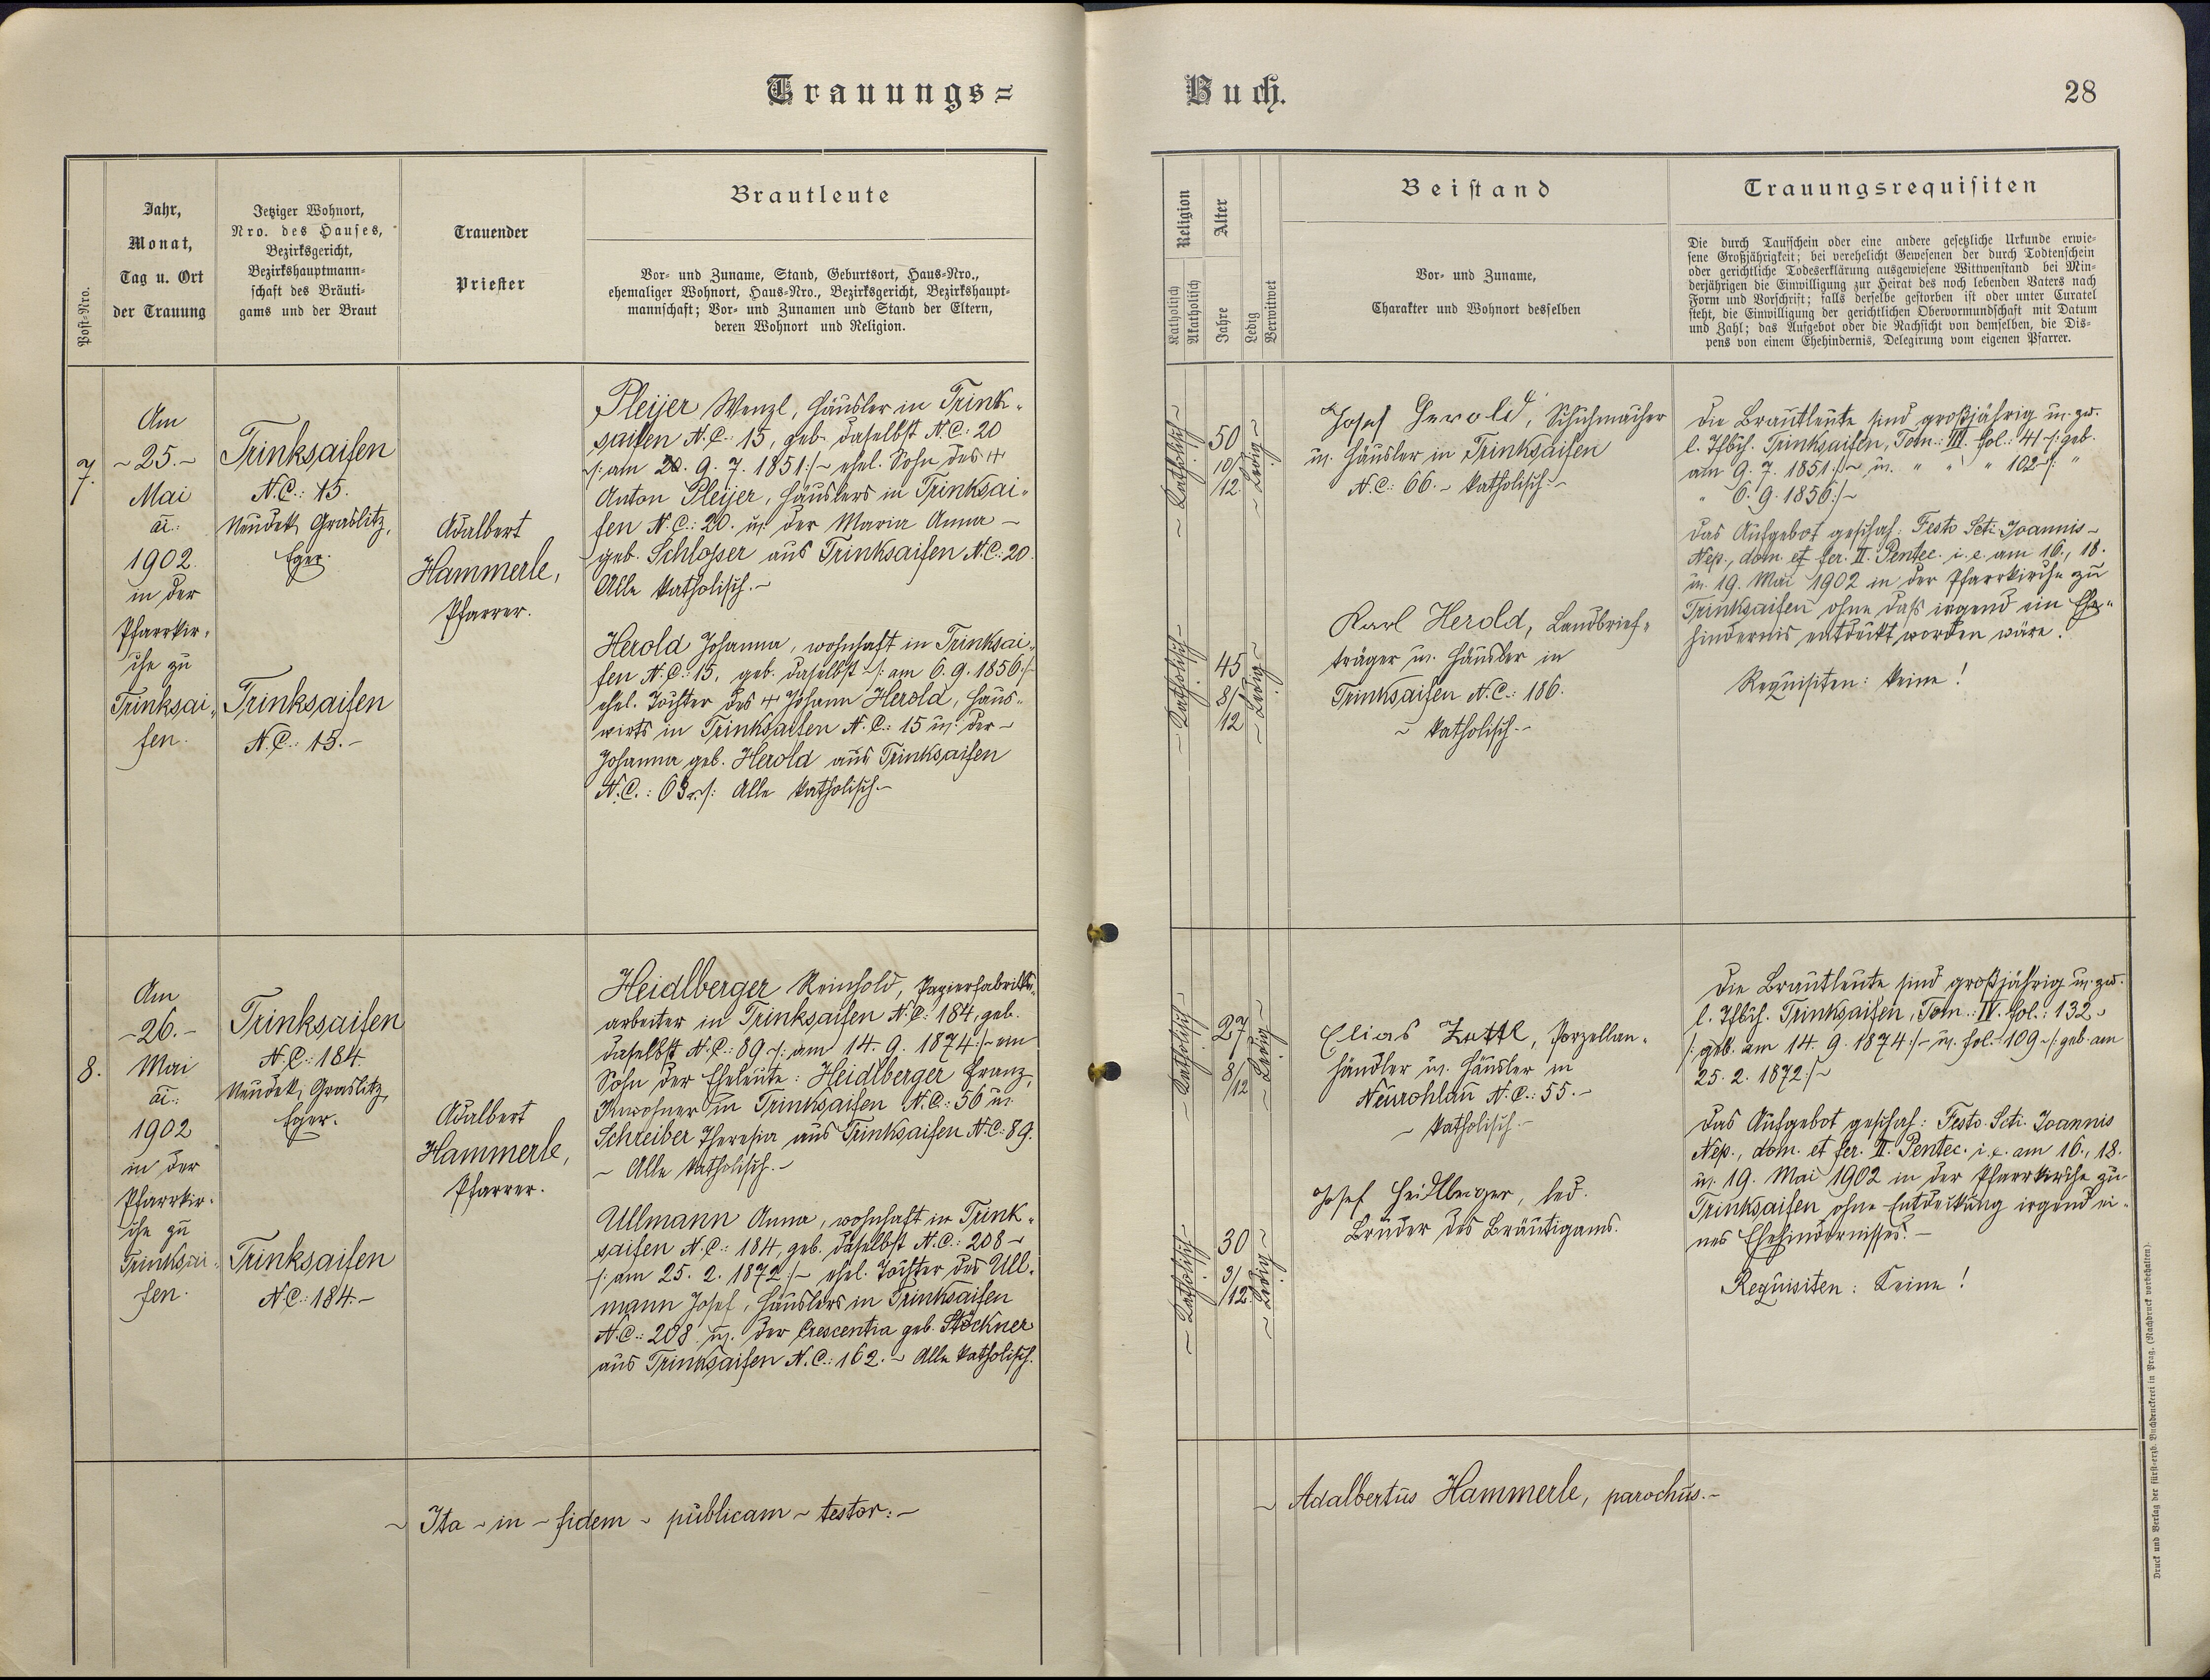 Trauungs=
Buch.
28
Post=Nro.
Jahr,
Monat,
Tag u. Ort
der Trauung
Jetziger Wohnort,
Nro. des Hauses,
Bezirksgericht,
Bezirkshauptmann=
schaft des Bräuti=
gams und der Braut
Trauender
Priester
Brautleute
Vor= und Zuname, Stand, Geburtsort, Haus=Nro.,
ehemaliger Wohnort, Haus=Nro., Bezirksgericht, Bezirkshaupt=
mannschaft; Vor= und Zunamen und Stand der Eltern,
deren Wohnort und Religion.
Religion
Katholisch
Akatholisch
Alter
Jahre
Ledig
Verwitwet
Beistand
Vor= und Zuname,
Charakter und Wohnort desselben
Trauungsrequisiten
Die durch Taufschein oder eine andere gesetzliche Urkunde erwie=
sene Großjährigkeit; bei verehelicht Gewesenen der durch Todtenschein
oder gerichtliche Todeserklärung ausgewiesene Wittwenstand bei Min=
derjährigen die Einwilligung zur Heirat des noch lebenden Vaters nach
Form und Vorschrift; falls derselbe gestorben ist oder unter Curatel
steht, die Einwilligung der gerichtlichen Obervormundschaft mit Datum
und Zahl; das Aufgebot oder die Nachsicht von demselben, die Dis=
pens von einem Ehehindernis, Delegirung vom eigenen Pfarrer.
7.
Am
~25.~
Mai
ai:
1902.
in der
Pfarrkir=
che zu
Trinksai=
fen.
Trinksaifen
N.C.: 15.
Neudek, Graslitz,
Eger.
Trinksaifen
N.C.: 15.~
Adalbert
Hammerle,
Pfarrer.
Pleijer Wenzl, Häusler in Trink=
saifen N.C.: 15, geb. daselbst N.C.: 20
~/: am 9. 7. 1851:/~ ehel. Sohn des †
Anton Pleijer, Häuslers in Trinksai=
fen N.C.: 20. u. der Maria Anna ~
geb. Schlosser aus Trinksaifen N.C.: 20.
Alle katholisch.~
Herold Johanna, wohnhaft in Trinksai=
fen N.C.: 15, geb. daselbst ~/: am 6. 9. 1856:/~
ehel. Tochter des † Johann Herold, Haus=
wirts in Trinksaifen N.C.: 15 u. der ~
Johanna geb. Herold aus Trinksaifen
N.C.: 63. Alle katholisch.~
~ Katholisch ~
50
10/
12.
~ Ledig ~
~ Katholisch ~
45
8/
12
~ Ledig ~
Josef Herold, Schuhmacher
u. Häusler in Trinksaifen
N.C.: 66. ~ katholisch.~
Karl Herold, Landbrief=
träger u. Häusler in
Trinksaifen N.C.: 186.
~ katholisch.~
Die Brautleute sind großjährig u. zw.
l. Tfbch. Trinksaifen, Tom.: III. Fol.: 41 ~/: geb.
am 9. 7. 1851:/~ u. " " " 102 ~/: "
" 6. 9. 1856:/~
Das Aufgebot geschah: Festo Scti. Joannis ~
Nep., dom. et fer. II. Pentec. i. e. am 16., 18.
u. 19. Mai 1902 in der Pfarrkirche zu
Trinksaifen ohne daß irgend ein Ehe=
hindernis entdeckt worden wäre.
Requisiten: Keine!
8.
Am
~26.~
Mai
ai:
1902
in der
Pfarrkir=
che zu
Trinksai=
fen.
Trinksaifen
N.C.: 184.
Neudek, Graslitz,
Eger.
Trinksaifen
N.C.: 184.~
Adalbert
Hammerle,
Pfarrer.
Heidlberger Reinhold, Papierfabriks=
arbeiter in Trinksaifen N.C.: 184, geb.
daselbst N.C.: 89 ~/: am 14. 9. 1874:/~ ein
Sohn der Eheleute: Heidlberger Franz,
Inwohner in Trinksaifen N.C.: 56 u.
Schreiber Theresia aus Trinksaifen N.C.: 89.
~ Alle katholisch.~
Ullmann Anna, wohnhaft in Trink=
saifen N.C.: 184, geb. daselbst N.C.: 208 ~
~/: am 25. 2. 1872:/~ ehel. Tochter des Ull=
mann Josef, Häuslers in Trinksaifen
N.C.: 208 u. der Crescentia geb. Stöckner
aus Trinksaifen N.C.: 162. ~ Alle katholisch.
~ Katholisch ~
27
8/
12
~ Ledig ~
~ Katholisch ~
30
3/
12.
~ Ledig ~
Elias Zettl, Porzellan=
händler u. Häusler in
Neurohlau N.C.: 55.~
~ katholisch.~
Josef Heidlberger, led.
Bruder des Bräutigams.
Die Brautleute sind großjährig u. zw.
l. Tfbch. Trinksaifen, Tom.: IV. Fol.: 132 ~
/: geb. am 14. 9. 1874:/~ u. fol. 109 ~/: geb. am
25. 2. 1872:/~
Das Aufgebot geschah: Festo Scti. Joannis
Nep., dom. et fer. II. Pentec. i. e. am 16., 18.
u. 19. Mai 1902 in der Pfarrkirche zu
Trinksaifen ohne Entdeckung irgend ei=
nes Ehehindernisses.~
Requisiten: Keine!
~ Ita ~ in ~ fidem ~ publicam ~ testor: ~
~ Adalbertus Hammerle, parochus.~
Druck und Verlag der fürst=erzb. Buchdruckerei in Prag. (Nachdruck vorbehalten).